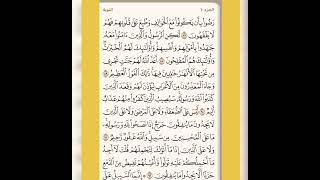 الجزء ١٠
التوبة
رَضُوا۟ بِأَن يَكُونُوا۟ مَعَ ٱلْخَوَالِفِ وَطُبِعَ عَلَىٰ قُلُوبِهِمْ فَهُمْ
لَا يَفْقَهُونَ ٨٧ لَٰكِنِ ٱلرَّسُولُ وَٱلَّذِينَ ءَامَنُوا۟ مَعَهُۥ
جَٰهَدُوا۟ بِأَمْوَٰلِهِمْ وَأَنفُسِهِمْ وَأُو۟لَٰٓئِكَ لَهُمُ ٱلْخَيْرَٰتُ
وَأُو۟لَٰٓئِكَ هُمُ ٱلْمُفْلِحُونَ ٨٨ أَعَدَّ ٱللَّهُ لَهُمْ جَنَّٰتٍ تَجْرِى
مِن تَحْتِهَا ٱلْأَنْهَٰرُ خَٰلِدِينَ فِيهَا ذَٰلِكَ ٱلْفَوْزُ ٱلْعَظِيمُ ٨٩
وَجَآءَ ٱلْمُعَذِّرُونَ مِنَ ٱلْأَعْرَابِ لِيُؤْذَنَ لَهُمْ وَقَعَدَ ٱلَّذِينَ
كَذَبُوا۟ ٱللَّهَ وَرَسُولَهُۥ سَيُصِيبُ ٱلَّذِينَ كَفَرُوا۟ مِنْهُمْ عَذَابٌ
أَلِيمٌ ٩٠ لَّيْسَ عَلَى ٱلضُّعَفَآءِ وَلَا عَلَى ٱلْمَرْضَىٰ وَلَا عَلَى ٱلَّذِينَ
لَا يَجِدُونَ مَا يُنفِقُونَ حَرَجٌ إِذَا نَصَحُوا۟ لِلَّهِ وَرَسُولِهِۦ
مَا عَلَى ٱلْمُحْسِنِينَ مِن سَبِيلٍ وَٱللَّهُ غَفُورٌ رَّحِيمٌ ٩١
وَلَا عَلَى ٱلَّذِينَ إِذَا مَآ أَتَوْكَ لِتَحْمِلَهُمْ قُلْتَ لَآ أَجِدُ
مَآ أَحْمِلُكُمْ عَلَيْهِ تَوَلَّوا۟ وَّأَعْيُنُهُمْ تَفِيضُ مِنَ ٱلدَّمْعِ
حَزَنًا أَلَّا يَجِدُوا۟ مَا يُنفِقُونَ ٩٢ إِنَّمَا ٱلسَّبِيلُ عَلَى